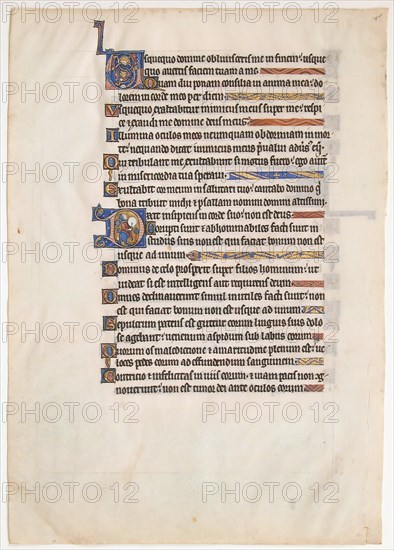 Usquequo domine oblivisceris me in finem: usque
quo avertis faciem tuam a me
Quam diu ponam consilia in anima mea: do
lorem in corde meo per diem
Usquequo exaltabitur inimicus meus super me: respi
ce et exaudi me domine deus meus
Illumina oculos meos ne umquam obdormiam in mor
te: nequando dicat inimicus meus
Qui tribulant me exultabunt si motus fuero: ego aut
in misericordia tua speravi
Exultabit cor meum in salutari tuo: cantabo domino q
bona tribuit michi et psallam nomini domini altissimi
Dixit insipiens in corde suo: non est deus
Corrupti sunt et abhominabiles facti sunt in
studiis suis non est qui faciat bonum non est
usque ad unum
Dominus de celo prospexit super filios hominum: ut
videat si est intelligens aut requirens deum
Omnes declinaverunt simul inutiles facti sunt: non
est qui faciat bonum non est usque ad unum
Sepulcrum patens est guttur eorum linguis suis dolo
se agebant: venenum aspidum sub labiis eorum
Quorum os maledictione et amaritudine plenum est: ve
loces pedes eorum ad effundendum sanguinem
Contricio et infelicitas in viis eorum: et viam pacis non
noverunt: non est timor dei ante oculos eorum
PHOTO 12